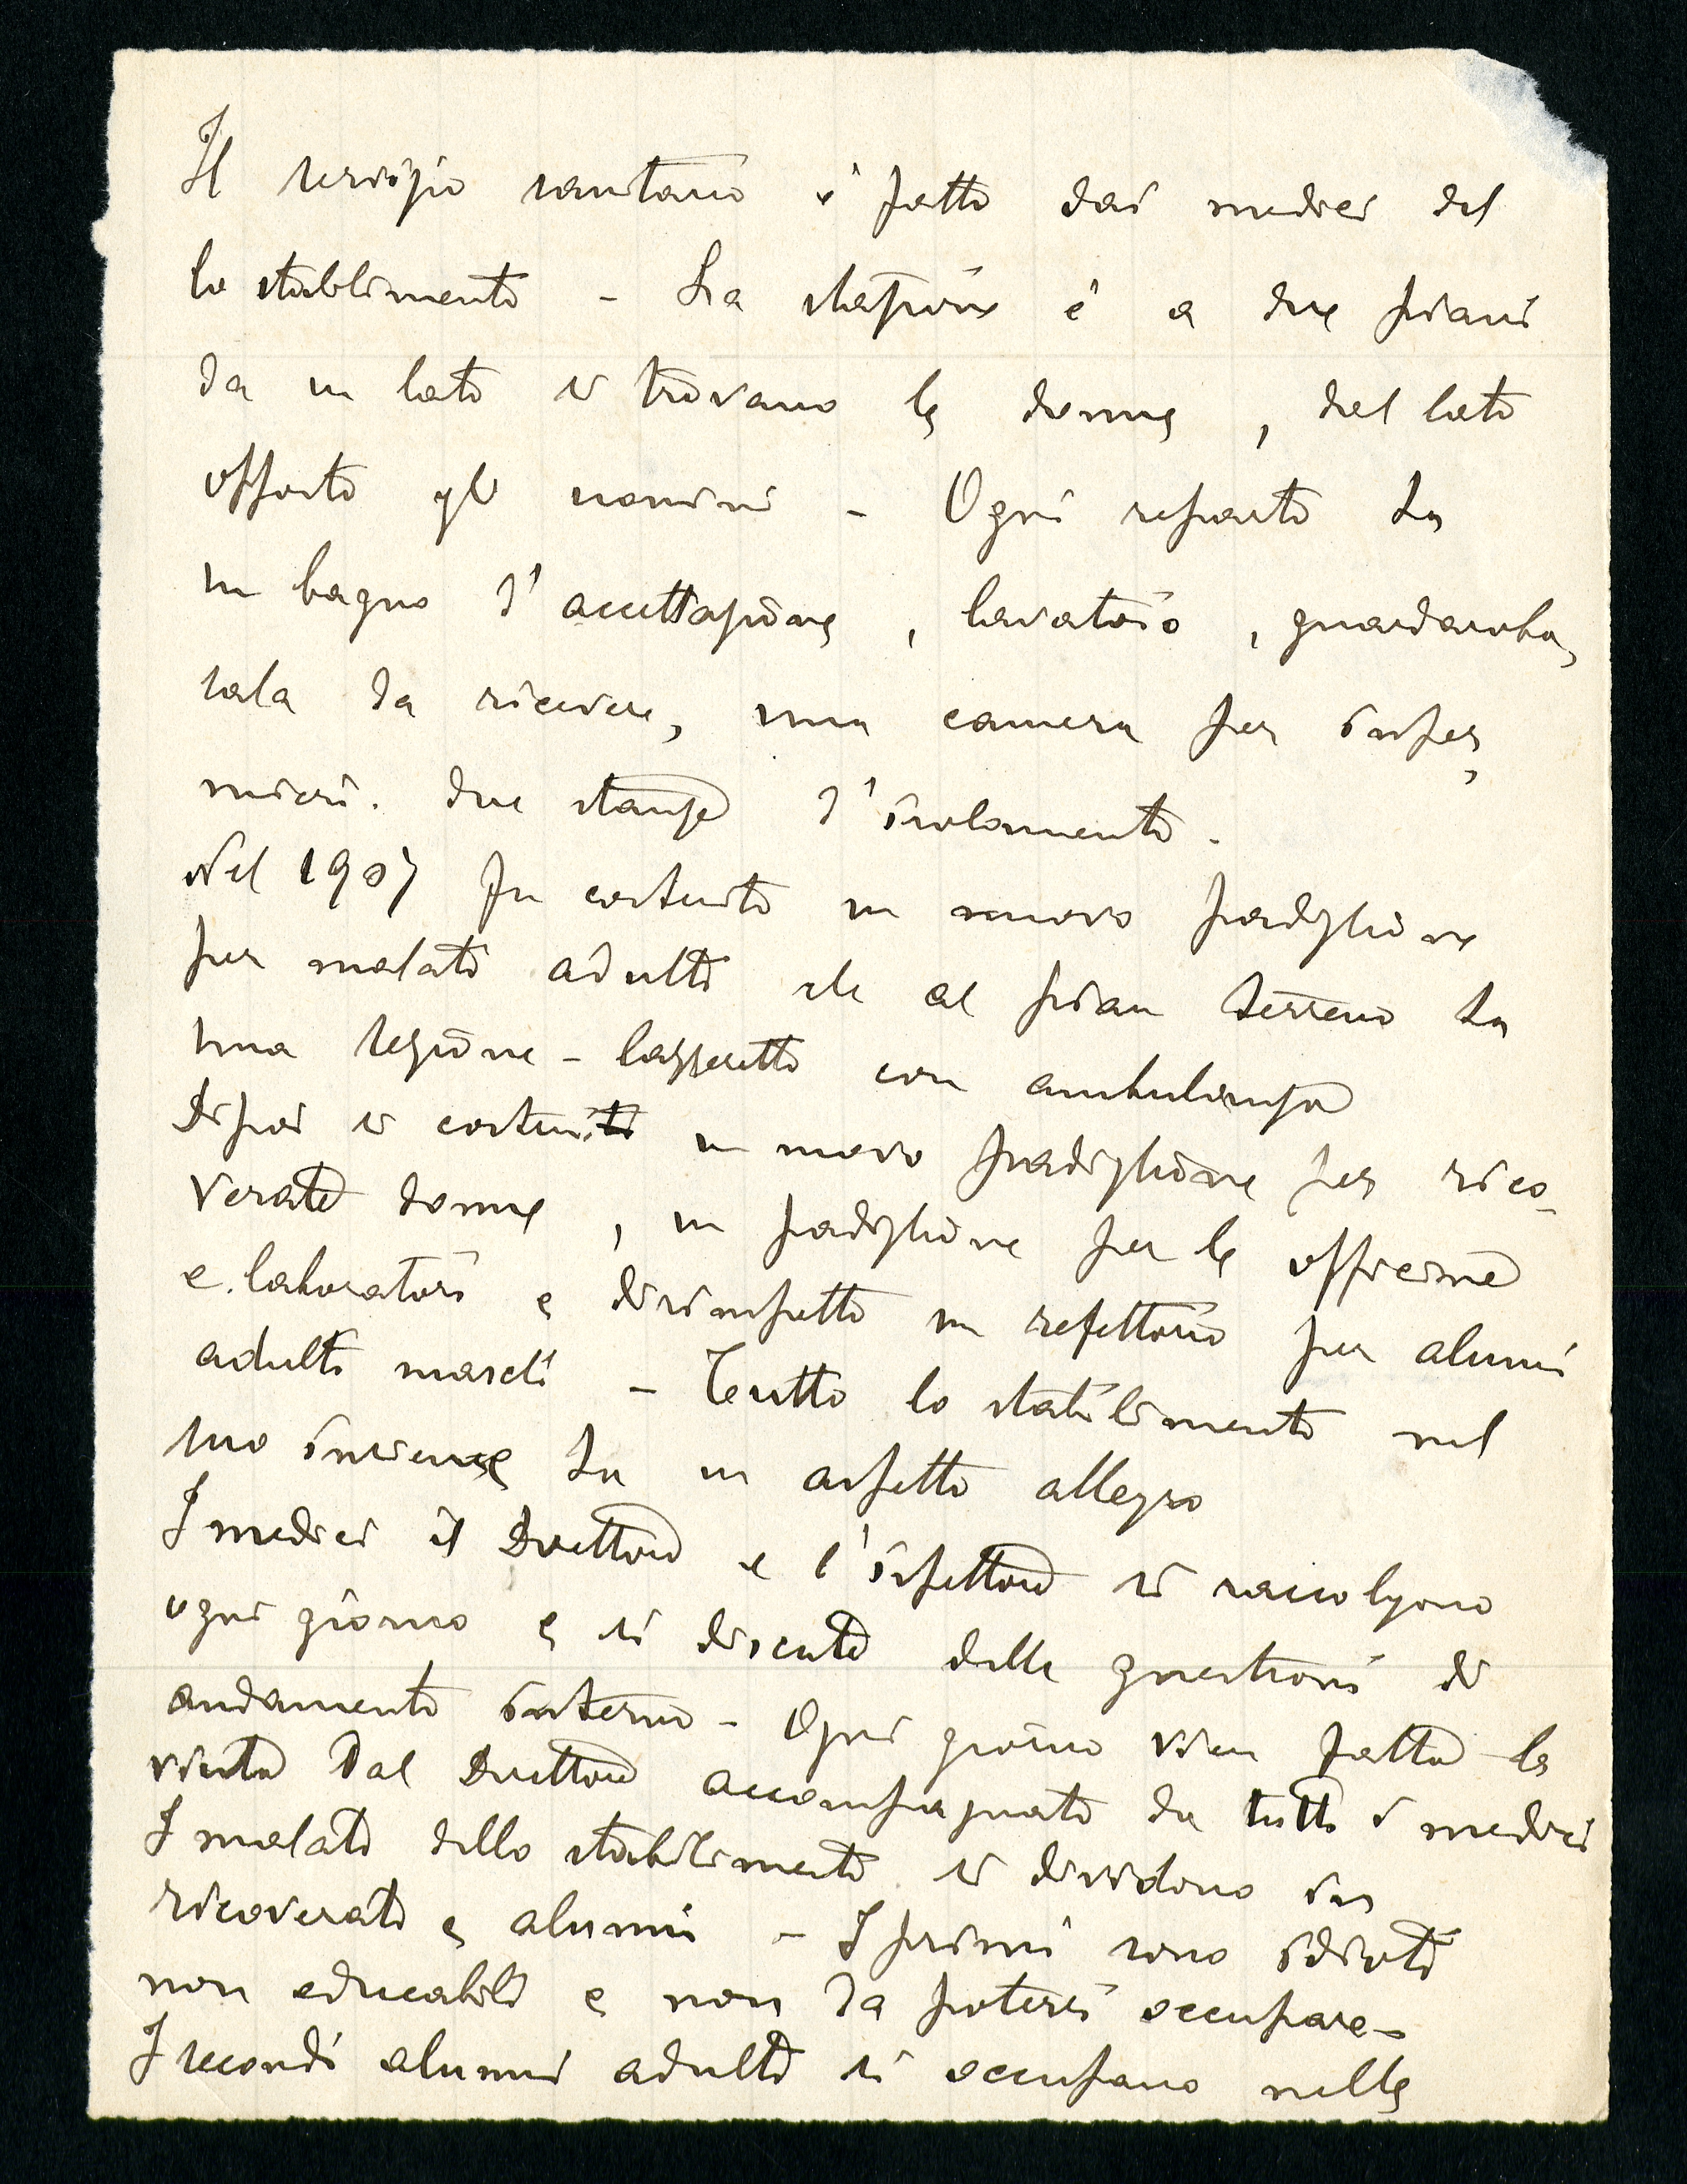 Il servizio sanitario è fatto dai medici del
lo stablimento - La stazione è a due piani
da un lato si trovano le donne, dal lato
opposto gli uomini - Ogni reparto ha
un bagno d'accettazione, lavatoio, guardaroba,
sala da ricevere, una camera per infer
mieri. due stanze d'isolamento.
Nel 1907 fu costruito un nuovo padiglione
per malati adulti che al pian terreno ha
una sezione - lazzeretto con ambulanza
Dipoi si costruì un nuovo padiglione per rico-
verate donne, un padiglione per le officine
e laboratori e dirimpetto un refettorio per alunni
adulti maschi - Tutto lo stabilimento nel
suo insieme ha un aspetto allegro
I medici il Direttore e l'ispettore si raccolgono
ogni giorno e si discute delle questioni di
andamento interno - Ogni giorno vien fatta la
visita dal Direttore accompagnato da tutti i medici
I malati dello stabilimento si dividono in
ricoverati e alunni - I primi sono idioti
non educabili e non da potersi occupare -
I secondi alunni adulti si occupano nelle